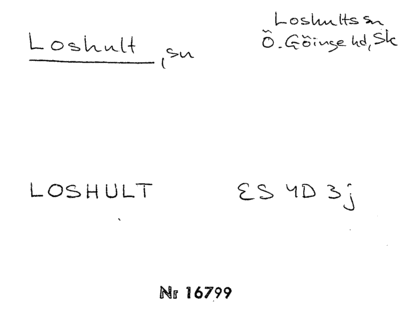 Loshult, sn
Loshults sn
Ö. Göinge hd, Sk
LOSHULT
ES 4D 3j
Nr 16799